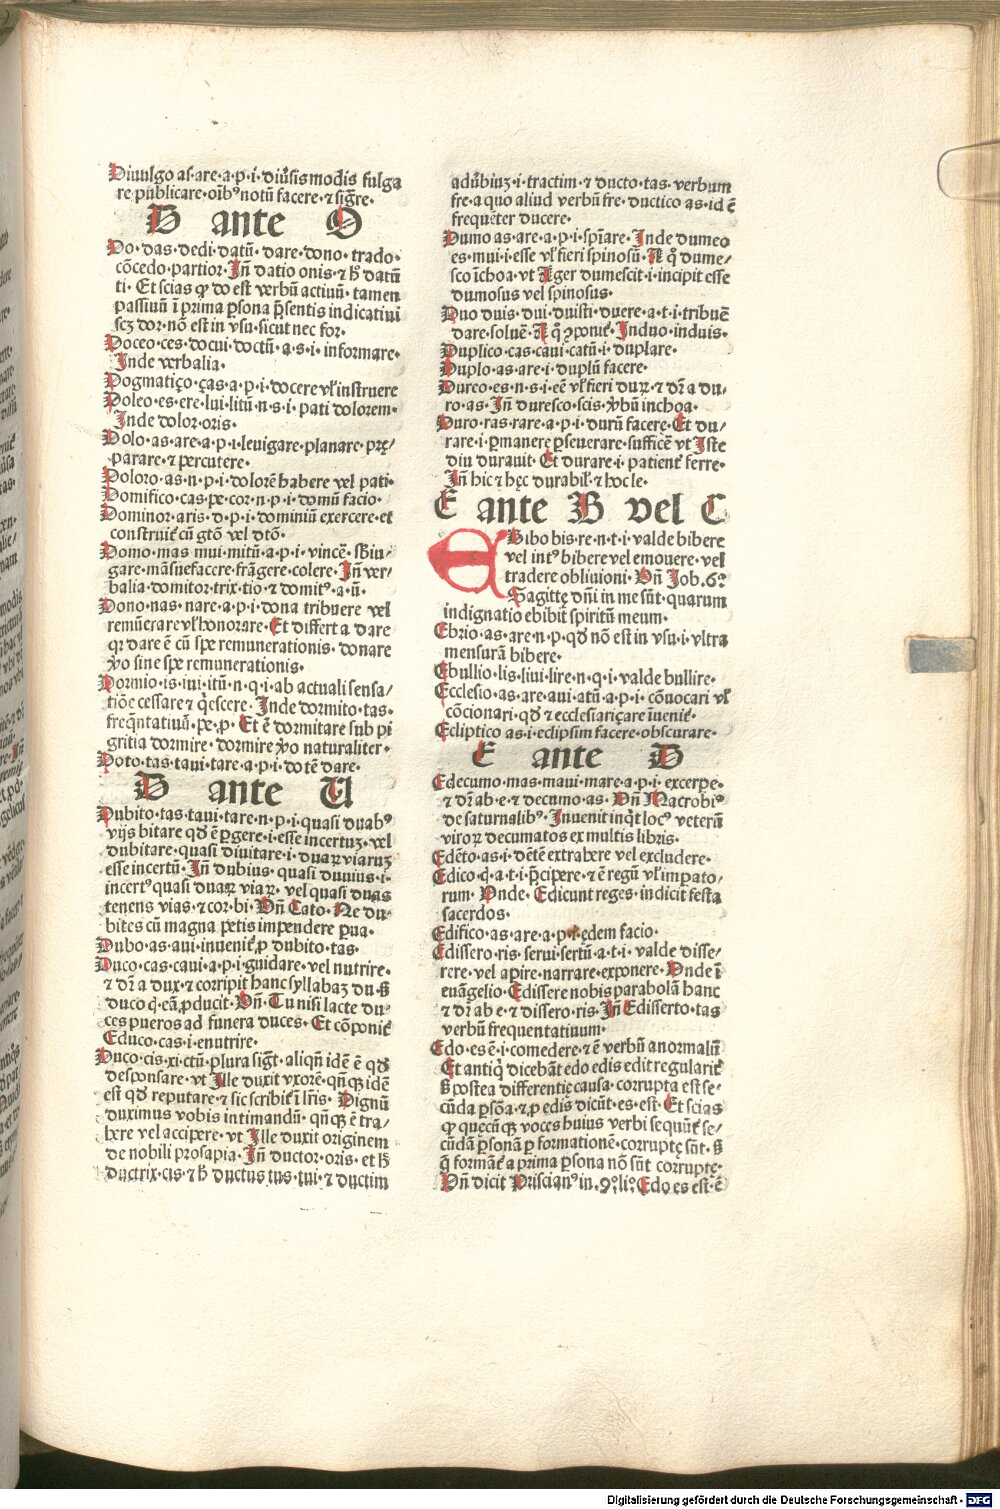 Diuulgo as·are·a·p·i· diũsis modis fulga
re publicare·oĩbꝰ notũ facere·⁊ sigr̃e·
D ante O
Do·das·dedi·datũ·dare·dono·trado·
cõcedo·partior·Jñ datio onis·⁊ h̃ datũ
ti· Et scias ꝙ do est verbũ actiuũ·tamen
passiuũ ĩ prima ꝑsona p̃sentis indicatiui
scꝫ dor·nõ est in vsu·sicut nec for·
Doceo·ces·docui·doctũ·a·s·i·informare·
Jnde verbalia·
Dogmatiço·ças·a·p·i·docere vl̃ instruere
Doleo·es·ere·lui·litũ·n·s·i·pati dolorem·
Jnde dolor·oris·
Dolo·as·are·a·p·i·leuigare·planare·prę/
parare·⁊ percutere·
Doloro·as·n·p·i·dolorẽ habere vel pati·
Domifico·cas·pe·cor·n·p·i·domũ facio·
Dominor·aris·d·p·i·dominiũ exercere·et
construit̃ cũ gtõ vel dtõ·
Domo·mas·mui·mitũ·a·p·i·vincẽ·sbiu/
gare·mãsuefacere·frãgere·colere·Jñ ver/
balia·domitor·trix·tio·⁊ domitꝰ·a·ũ·
Dono·nas·nare·a·p·i·dona tribuere vel
remũerare vl̃ honorare·Et differt a dare
qꝛ dare ẽ cũ spe remunerationis·donare
v̊o sine spe remunerationis·
Dormio·is·iui·itũ·n·q·i·ab actuali sensa/
tiõe cessare ⁊ q̃escere·Jnde dormito·tas·
freq̃ntatiuũ·pe·p·Et ẽ dormitare sub pi
gritia dormire·dormire v̊o naturaliter·
Doto·tas·taui·tare·a·p·i·dotẽ dare·
D ante U
Dubito·tas·taui·tare·n·p·i·quasi duabꝰ
vijs bitare qd̃ ẽ ꝑgere·i·esse incertuꝫ·vel
dubitare·quasi diuitare·i·duaꝝ viaruꝫ
esse incertũ·Jñ dubius·quasi duuius·i·
incertꝰ quasi duaꝝ viaꝝ·vel quasi duas
tenens vias·⁊ cor·bi·Vñ Cato·Ne du·
bites cũ magna petis impendere ꝑua·
Dubo·as·aui·inuenit̃ ꝓ dubito·tas·
Duco·cas·caui·a·p·i·guidare·vel nutrire·
⁊ dr̃ a dux·⁊ corripit hanc syllabaꝫ du·ß
duco q̃·eã ꝓducit·Vñ·Tu nisi lacte du·
ces pueros ad funera duces·Et cõponit̃
Educo·cas·i·enutrire·
Duco·cis·xi·ctũ·plura sigt̃·aliqñ idẽ ẽ qd̃
desponsare·vt Jlle duxit vxorẽ·qñqꝫ idẽ
est qd̃ reputare·⁊ sic scribit̃ ĩ lr̃is·Dignũ
duximus vobis intimandũ·qñqꝫ ẽ tra/
here vel accipere·vt Jlle duxit originem
de nobili prosapia·Jñ ductor·oris·et h̃
ductrix·cis·⁊ h̃ ductus tus·tui·⁊ ductim
adũbiuꝫ·i·tractim·⁊ ducto·tas·verbum
fre·a quo aliud verbũ fre·ductico as·id ẽ
freq̃uẽter ducere·
Dumo as·are·a·p·i·spĩare·Jnde dumeo
es·mui·i·esse vl̃ fieri spinosũ·A q̊ dume/
sco ĩchoa·vt Ager dumescit·i·incipit esse
dumosus vel spinosus·
Duo duis·dui·duisti·duere·a·t·i·tribuẽ
dare·soluẽ·A q̊ ꝯponit̃·Jnduo·induis·
Duplico·cas·caui·catũ·i·duplare·
Duplo·as·are·i·duplũ facere·
Dureo·es·n·s·i·eẽ vl̃ fieri duꝝ·⁊ dr̃ a du/
ro·as·Jñ duresco·scis·v̊bũ inchoa·
Duro·ras·rare·a·p·i·durũ facere·Et du/
rare·i·ꝑmanere ꝑseuerare·sufficẽ vt Jste
diu durauit·Et durare·i·patient̃ ferre·
Jñ hic ⁊ hęc durabil̃·⁊ hoc le·
E ante B vel C
Ebibo bis·re·n·t·i·valde bibere
vel intꝰ bibere vel emouere·vel
tradere obliuioni·Vñ Job.6?
Sagittę dñi in me sũt·quarum
indignatio ebibit spiritũ meum·
Ebrio·as·are·n·p·qd̃ nõ est in vsu·i·vltra
mensurã bibere·
Ebullio·lis·liui·lire·n·q·i·valde bullire·
Ecclesio·as·are·aui·atũ·a·p·i·cõuocari vl̃
cõcionari·qd̃ ⁊ ecclesiariçare ĩuenit̃·
Ecliptico as·i·eclipsim facere·obscurare·
E ante D
Edecumo·mas·maui·mare·a·p·i·excerpe·
⁊ dr̃ ab·e·⁊ decumo·as·Vñ Macrobiꝰ
de saturnalibꝰ·Jnuenit inq̃t locꝰ veterũ
viroꝝ decumatos ex multis libris·
Edẽto·as·i·dẽtẽ extrahere vel excludere·
Edico·q̃·a·t·i·p̃cipere·⁊ ẽ regũ vl̃ impato/
rum·Vnde·Edicunt reges·indicit festa
sacerdos·
Edifico·as·are·a·p·i·ędem facio·
Edissero·ris·serui·sertũ·a·t·i·valde disse/
rere·vel aꝑire·narrare·exponere·Vnde ĩ
euãgelio·Edissere nobis parabolã hanc
⁊ dr̃ ab e·⁊ dissero·ris·Jñ Edisserto·tas
verbũ frequentatiuum·
Edo·es·ẽ·i·comedere·⁊ ẽ verbũ anormalũ
Et antiq̃ dicebãt edo edis edit regularit̃
ß postea differentię causa·corrupta est se·
cũda ꝑsõa·⁊ ꝓ edis dicũt·es·est·Et scias
ꝙ quecũqꝫ voces huius verbi sequũt̃ se/
cũdã ꝑsonã ꝑ formationẽ·corruptę sũt·ß
q̃ formãt̃ a prima ꝑsona nõ sũt corruptę·
Vñ dicit Priscianꝰ in.9?li?Edo es est·ẽ
Digitalisierung gefördert durch die Deutsche Forschungsgemeinschaft · DFG